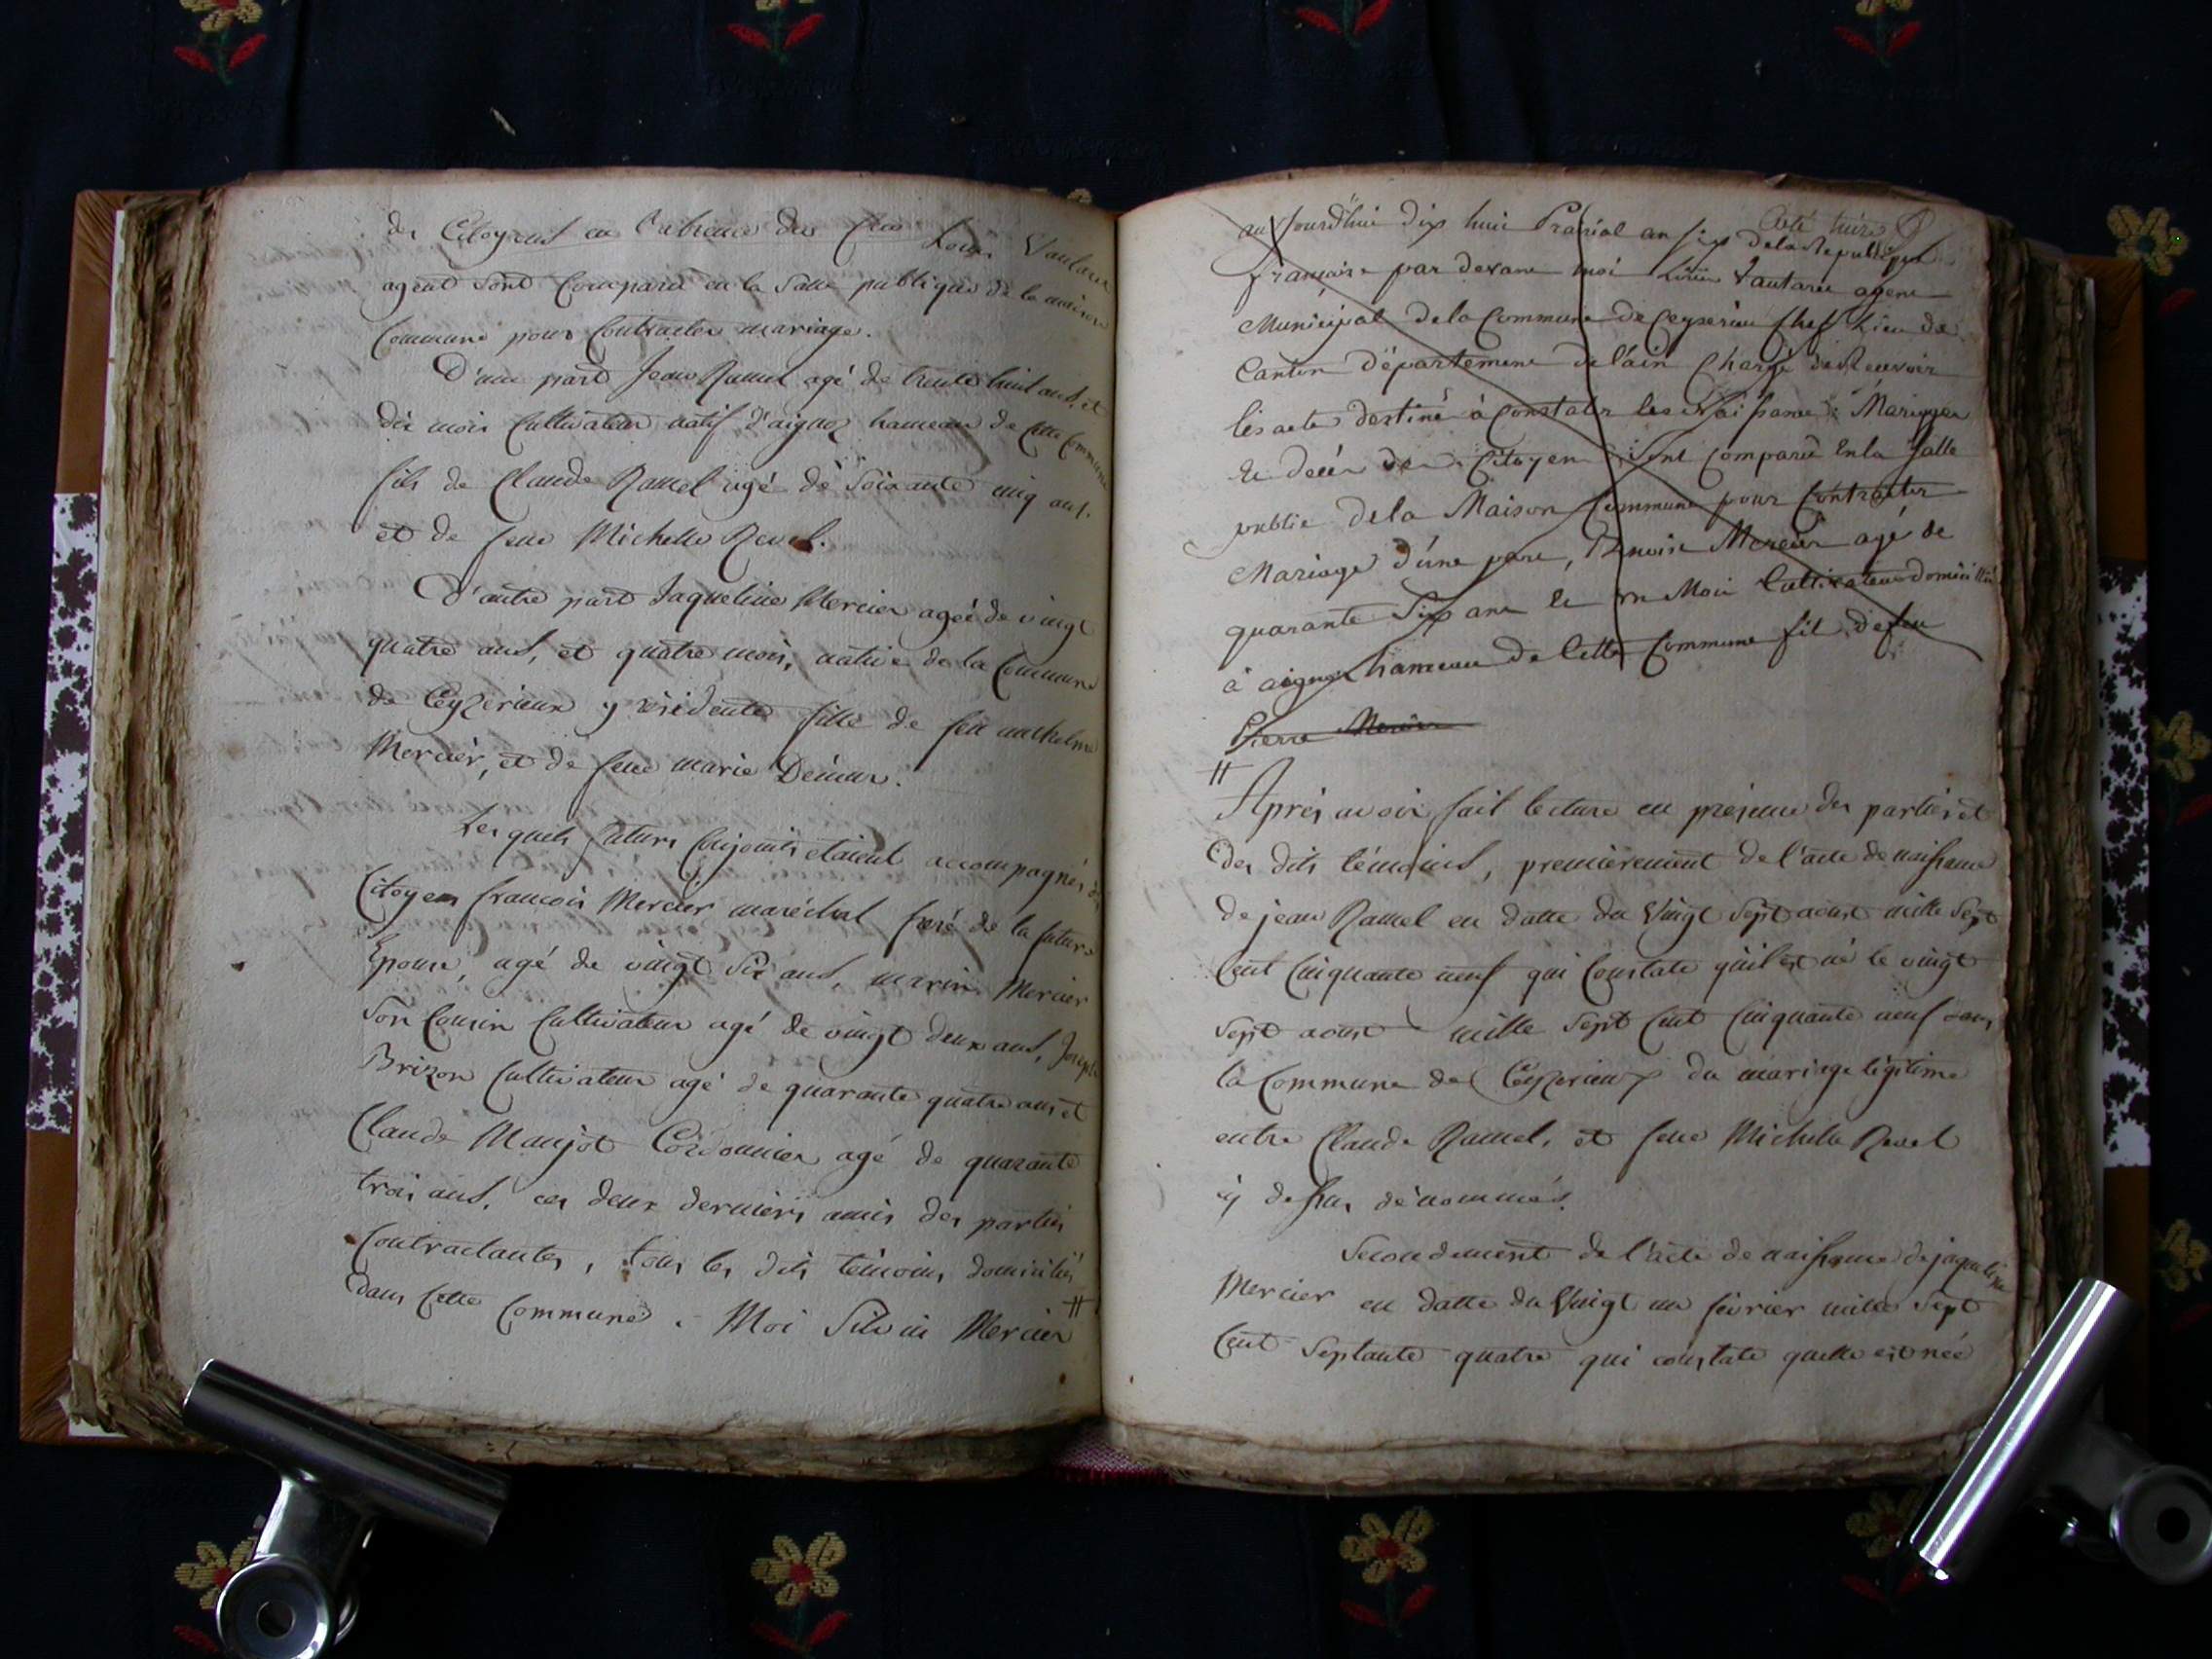 des Citoyens en l'absence du Cen Louis Vautaret
agent sont Comparu en la Salle publique de la maison
Commune pour Contracter mariage.
D'une part Jean Ramel agé de trente huit ans, et
dix mois Cultivateur natif d'aignoz hameau de cette Commune
fils de Claude Ramel agé de Soixante cinq ans.
et de feue Michelle Revel.
D'autre part Jaqueline Mercier ageé de vingt
quatre ans, et quatre mois, native de la Commune
de Ceyzerieux y residente fille de feu anthelme
Mercier, et de feue marie
Les quels futurs Conjoints etaient accompagnés des
Citoyens francois Mercier maréchal freré de la future
Epouse, agé de vingt Six ans, marin Mercier
Son Cousin Cultivateur agé de vingt deux ans, Joseph
Brizon Cultivateur agé de quarante quatre ans et
Claude Manjot Cordonnier agé de quarante
trois ans, ces deux derniers amis des parties
Contractantes, tous les dits témoins domiciliés
dans Cette Commune. Moi Silvin Mercier #
aujourd'hui dix huit Prairial an six de la Republique
française par devant moi Louis Vautaret agent
Municipal de la Commune de Ceyserieu Chef Lieu de
Canton département de l'ain Chargé de Recevoir
les acte destiné à Constater les Naissance Mariages
et decés des Citoyen Sont Comparu En la Salle
public de la Maison Commune pour Contracter
Mariage d'une part, Benoist Mercier agé de
quarante Six ans et un Moi Cultivateur domicillié
à aignoz hameau de Cette Commune fils de feu
Pierre Mercier
#
Aprés avoir fait lecture en presence des parties et
des dits témoins, premièrement de l'acte de naissance
de jean Ramel en datte du Vingt Sept aoust mille Sept
Cent Cinquante neuf qui Constate qu'il est né le vingt
Sept aoust mille Sept Cent Cinquante neuf dans
la Commune de Ceyzerieux du mariage légitime
entre Claude Ramel, et feue Michelle Revel
cy dessus dénommés.
Secondement de l'acte de naissance de jaqueline
Mercier en datte du Vingt un fevrier mille Sept
Cent Septante quatre qui constate quelle est née